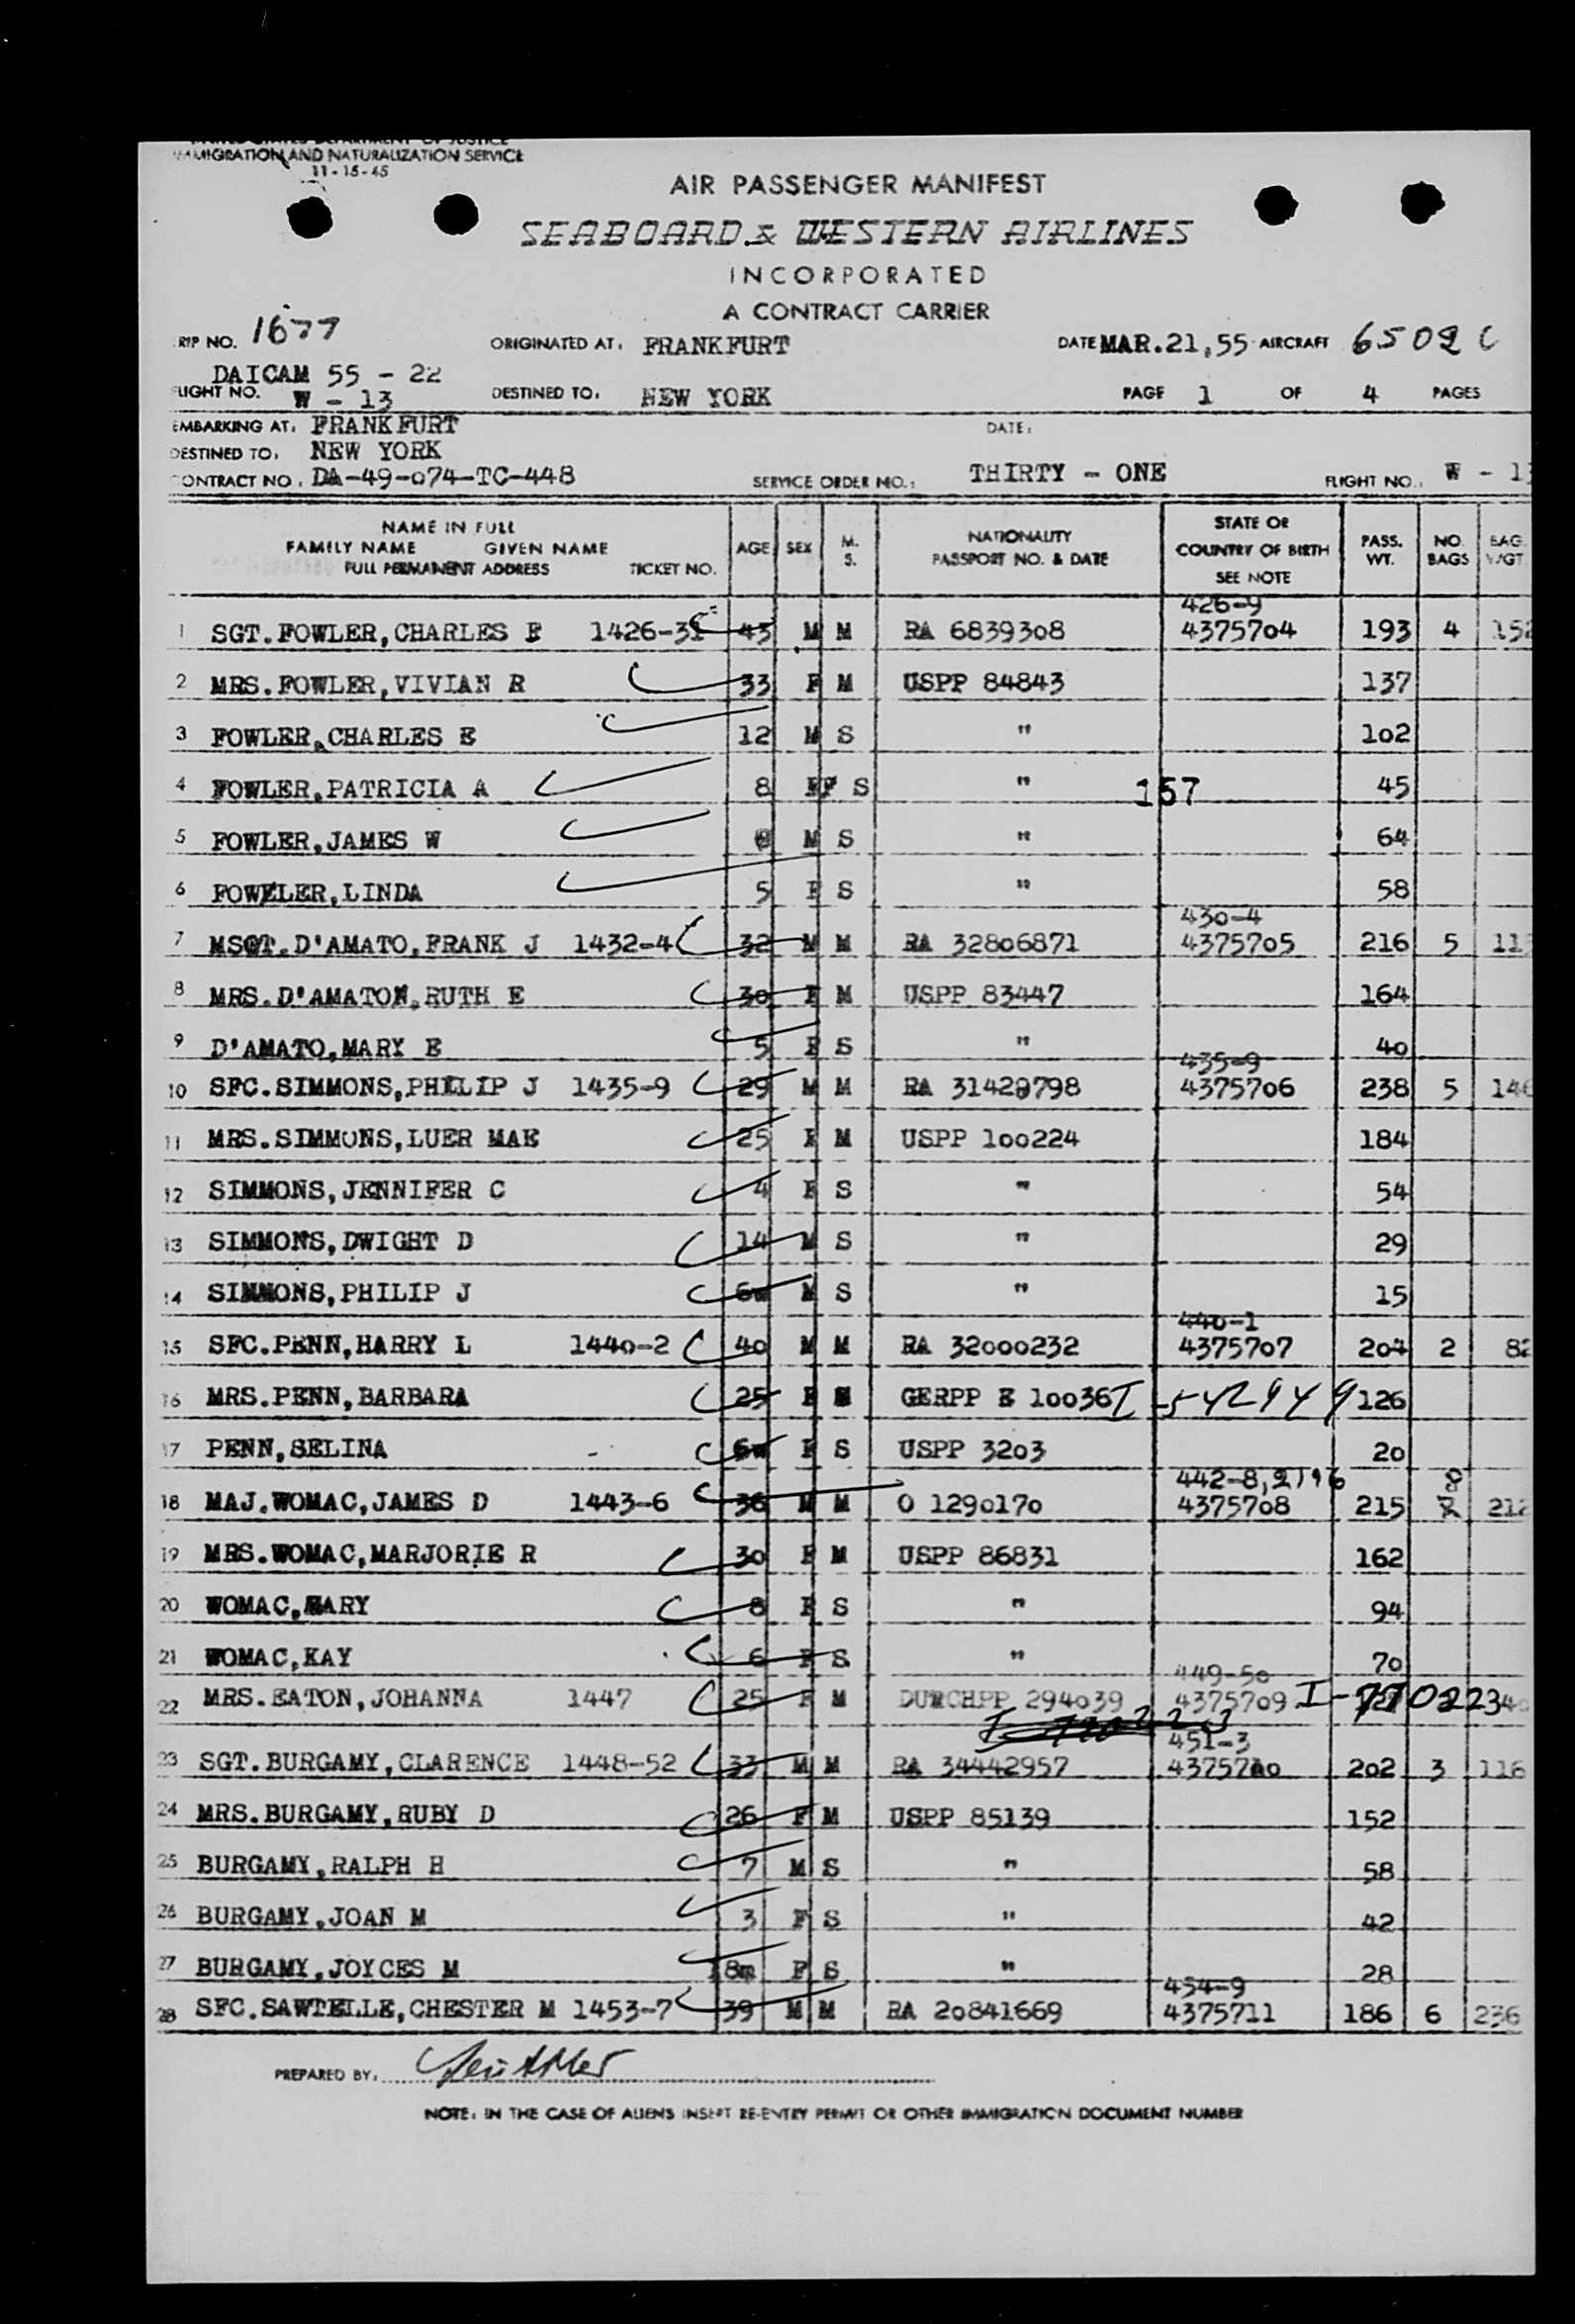 IMMIGRATION AND NATURALIZATION SERVICE
11-15-45
AIR PASSENGER MANIFEST
SEABOARD & WESTERN AIRLINES
INCORPORATED
A CONTRACT CARRIER
RIP NO. 1677 ORIGINATED AT: FRANKFURT DATE MAR.21,55 AIRCRAFT 6509 C
DAICAM 55 - 22
FLIGHT NO. W - 13 DESTINED TO: NEW YORK PAGE 1 OF 4 PAGES
EMBARKING AT: FRANKFURT DATE:
DESTINED TO: NEW YORK
CONTRACT NO. DA-49-074-TC-448 SERVICE ORDER NO.: THIRTY - ONE FLIGHT NO.: W - 13
NAME IN FULL
FAMILY NAME GIVEN NAME
FULL PERMANENT ADDRESS TICKET NO. AGE SEX M. S. NATIONALITY PASSPORT NO. & DATE STATE OR COUNTRY OF BIRTH SEE NOTE PASS. WT. NO. BAGS BAG. WGT
426-9
1 SGT.FOWLER,CHARLES E 1426-31 43 M M RA 6839308 4375704 193 4 152
2 MRS.FOWLER,VIVIAN R 33 F M USPP 84843 137
3 FOWLER,CHARLES E 12 M S " 102
4 FOWLER,PATRICIA A 8 F S " 157 45
5 FOWLER,JAMES W M S " 64
6 FOWLER,LINDA 5 F S " 58
430-4
7 MSGT.D'AMATO,FRANK J 1432-4 32 M M RA 32806871 4375705 216 5 11
8 MRS.D'AMATON,RUTH E 30 F M USPP 83447 164
9 D'AMATO,MARY E 5 F S " 40
435-9
10 SFC.SIMMONS,PHILLIP J 1435-9 29 M M RA 31429798 4375706 238 5 146
11 MRS.SIMMONS,LUER MAE 25 F M USPP 100224 184
12 SIMMONS,JENNIFER C 4 F S " 54
13 SIMMONS,DWIGHT D 14 M S " 29
14 SIMMONS,PHILIP J 6w M S " 15
440-1
15 SFC.PENN,HARRY L 1440-2 40 M M RA 32000232 4375707 204 2 82
16 MRS.PENN,BARBARA 25 F M GERPP E 10036 I-542949 126
17 PENN,SELINA 6w F S USPP 3203 20
442-8,2196
18 MAJ.WOMAC,JAMES D 1443-6 36 M M O 1290170 4375708 215 8 212
19 MRS.WOMAC,MARJORIE R 30 F M USPP 86831 162
20 WOMAC,MARY 8 F S " 94
21 WOMAC,KAY 6 F S " 70
449-50
22 MRS.EATON,JOHANNA 1447 25 F M DUTCHPP 294039 4375709 I-770223
451-3
23 SGT.BURGAMY,CLARENCE 1448-52 33 M M RA 34442957 4375710 202 3 116
24 MRS.BURGAMY,RUBY D 26 F M USPP 85139 152
25 BURGAMY,RALPH H 7 M S " 58
26 BURGAMY,JOAN M 3 F S " 42
27 BURGAMY,JOYCES M 8m F S " 28
454-9
28 SFC.SAWTELLE,CHESTER M 1453-7 39 M M RA 20841669 4375711 186 6 236
PREPARED BY:
NOTE: IN THE CASE OF ALIENS INSERT RE-ENTRY PERMIT OR OTHER IMMIGRATION DOCUMENT NUMBER